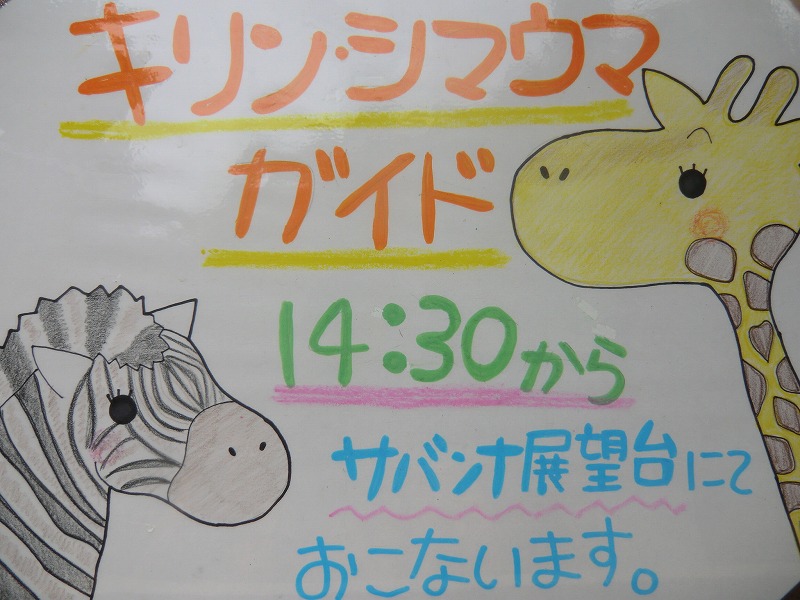 キリン・シマウマ
ガイド
14:30から
サバンナ展望台にて
おこないます。